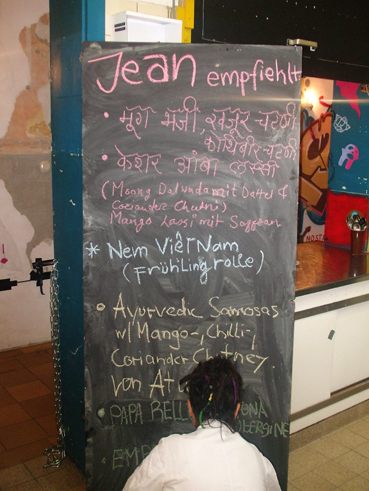 Jean empfiehlt
• मूग भजी, खजूर चटणी
कोथिंबीर चटणी
• केशर आंबा लस्सी
(Moong Dal vada mit Dattel &
Coriander Chutni)
Mango Lassi mit Saffran
* Nem Việt Nam
(Frühlingrolle)
• Ayurvedic Samosas
w/ Mango-, Chilli-,
Coriander Chutney.
von
PAPA